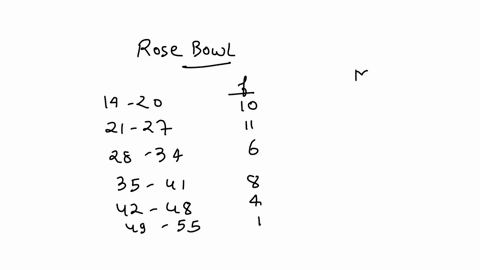 Rose Bowl
f
14 - 20 10
21 - 27 11
28 - 34 6
35 - 41 8
42 - 48 4
49 - 55 1